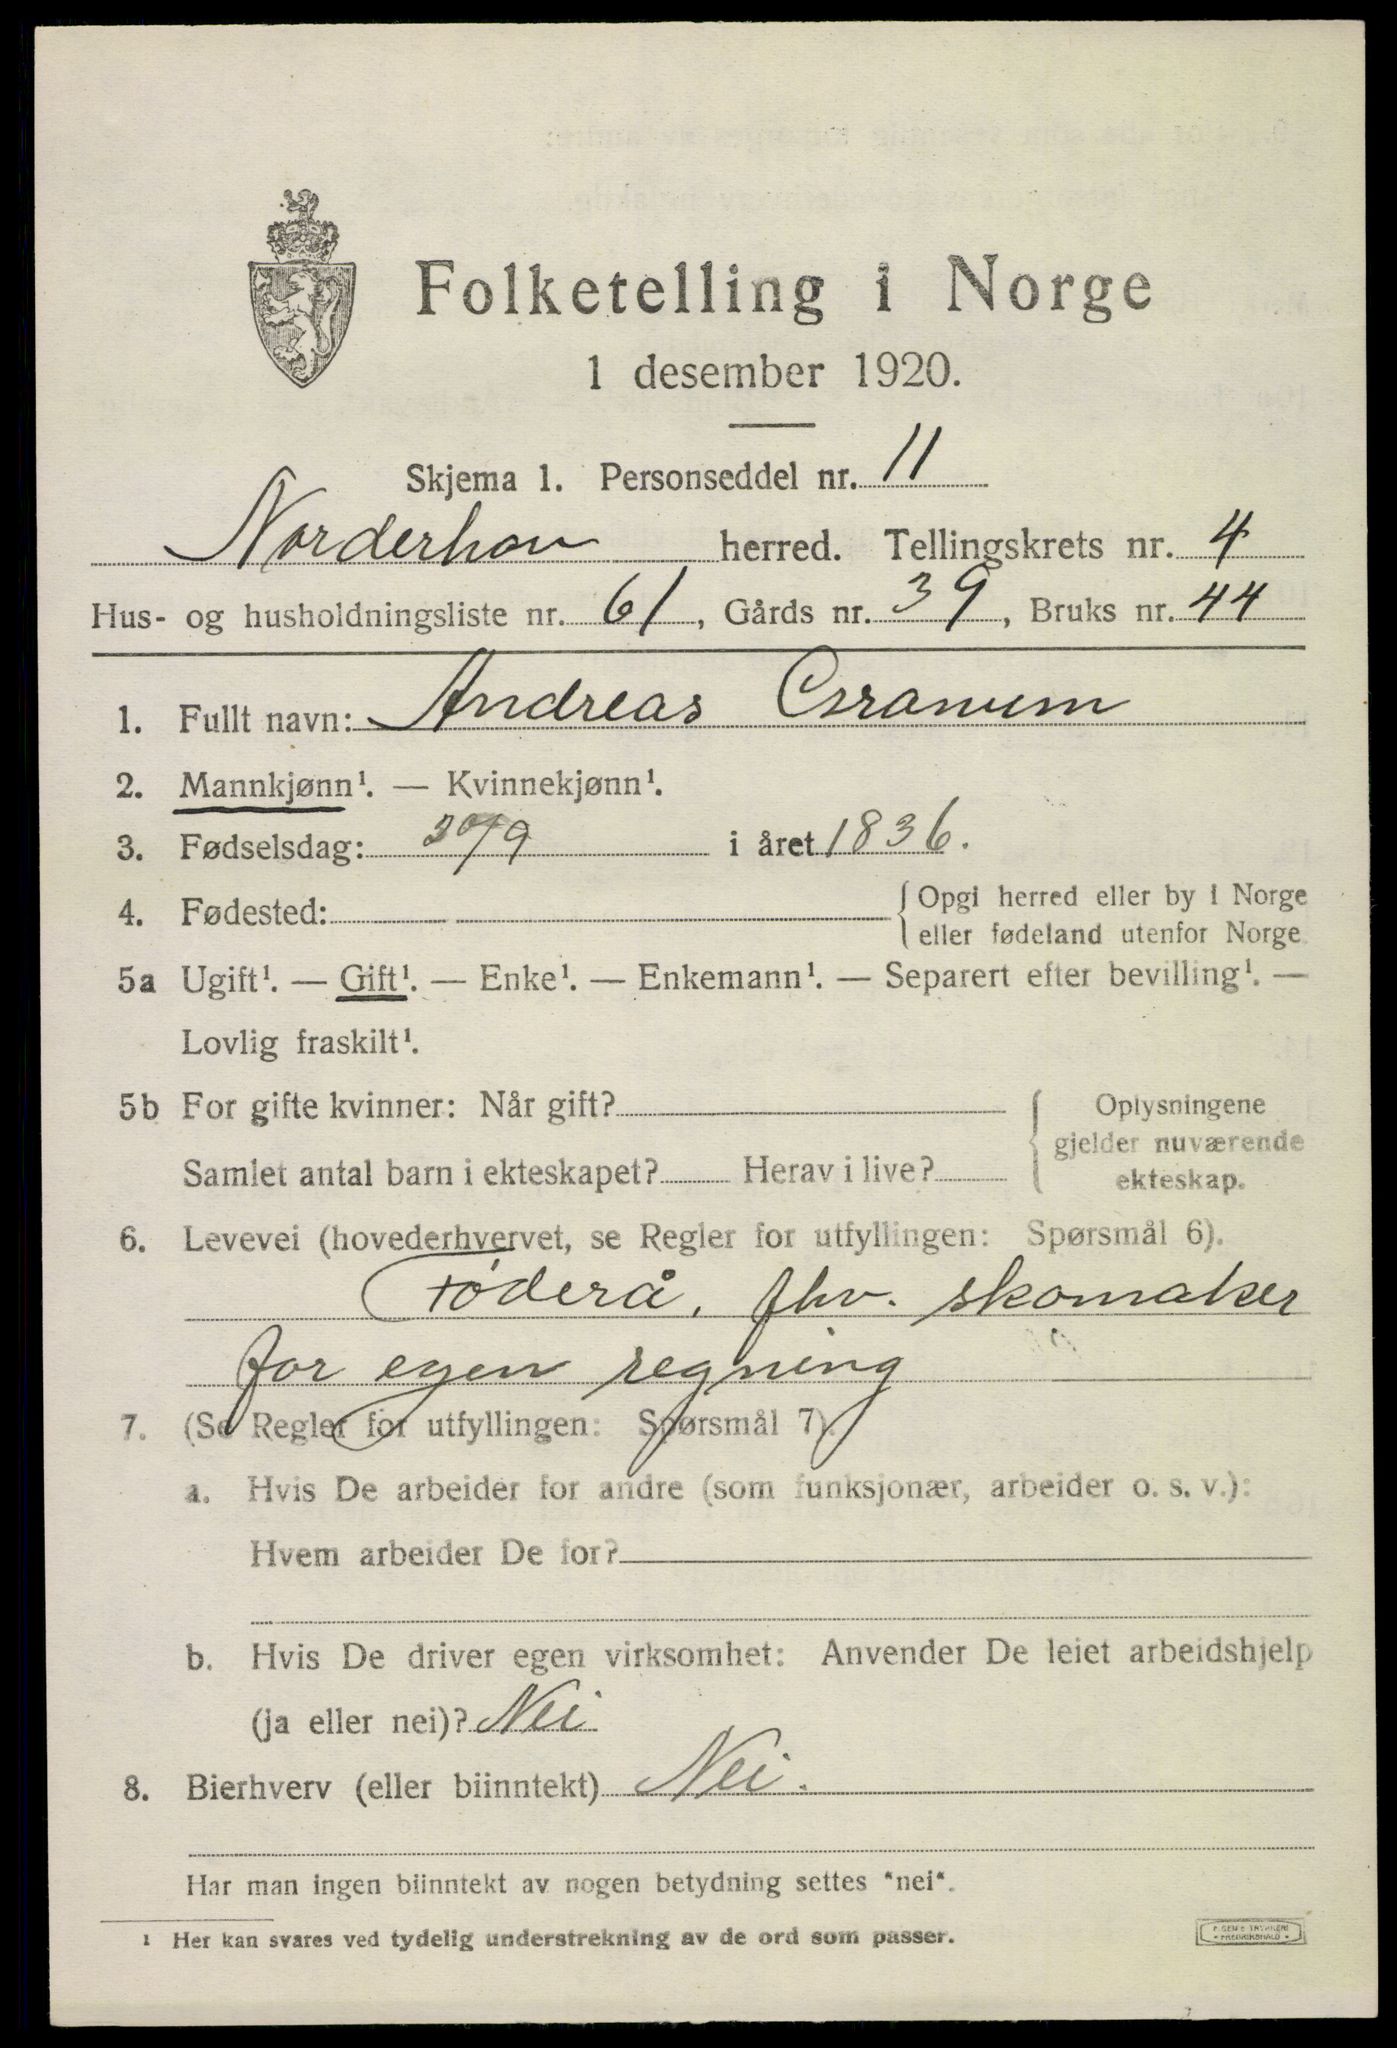 Folketelling i Norge
1 desember 1920.
Skjema 1. Personseddel nr. 11
Norderhov herred. Tellingskrets nr. 4
Hus- og husholdningsliste nr. 61, Gårds nr. 39, Bruks nr. 44
1. Fullt navn: Andreas
2. Mannkjønn¹. — Kvinnekjønn¹.
3. Fødselsdag: 30/9 i året 1836.
4. Fødested: { Opgi herred eller by i Norge
eller fødeland utenfor Norge
5a Ugift¹. — Gift¹. — Enke¹. — Enkemann¹. — Separert efter bevilling¹. —
Lovlig fraskilt¹.
5b For gifte kvinner: Når gift? { Oplysningene
gjelder nuværende
Samlet antal barn i ekteskapet? Herav i live? ekteskap.
6. Levevei (hovederhvervet, se Regler for utfyllingen: Spørsmål 6).
Føderå, fhv. skomaker
for egen regning
7. (Se Regler for utfyllingen: Spørsmål 7).
a. Hvis De arbeider for andre (som funksjonær, arbeider o. s. v.):
Hvem arbeider De for?
b. Hvis De driver egen virksomhet: Anvender De leiet arbeidshjelp
(ja eller nei)? Nei
8. Bierhverv (eller biinntekt) Nei.
Har man ingen biinntekt av nogen betydning settes "nei".
¹ Her kan svares ved tydelig understrekning av de ord som passer.